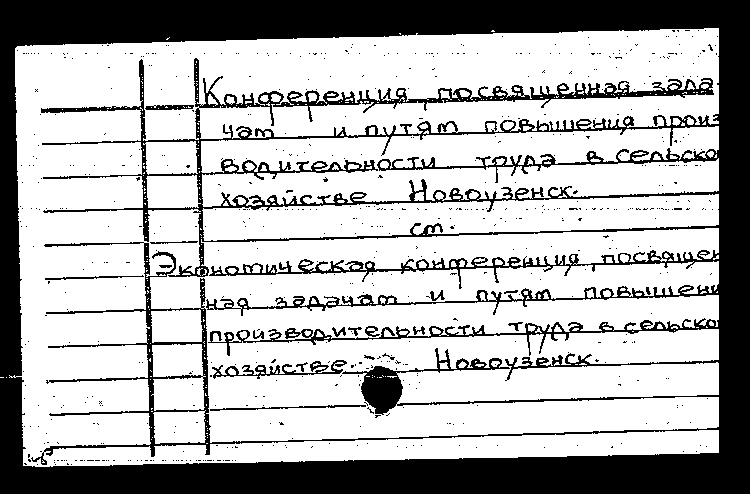 Конференция, посвященная зада-
чам и путям повышения произ
водительности труда в сельско
хозяйстве Новоузенск.
см.
Экономическая конференция, посвящен
ная задачам и путям повышени
производительности труда в сельско
хозяйстве. Новоузенск.